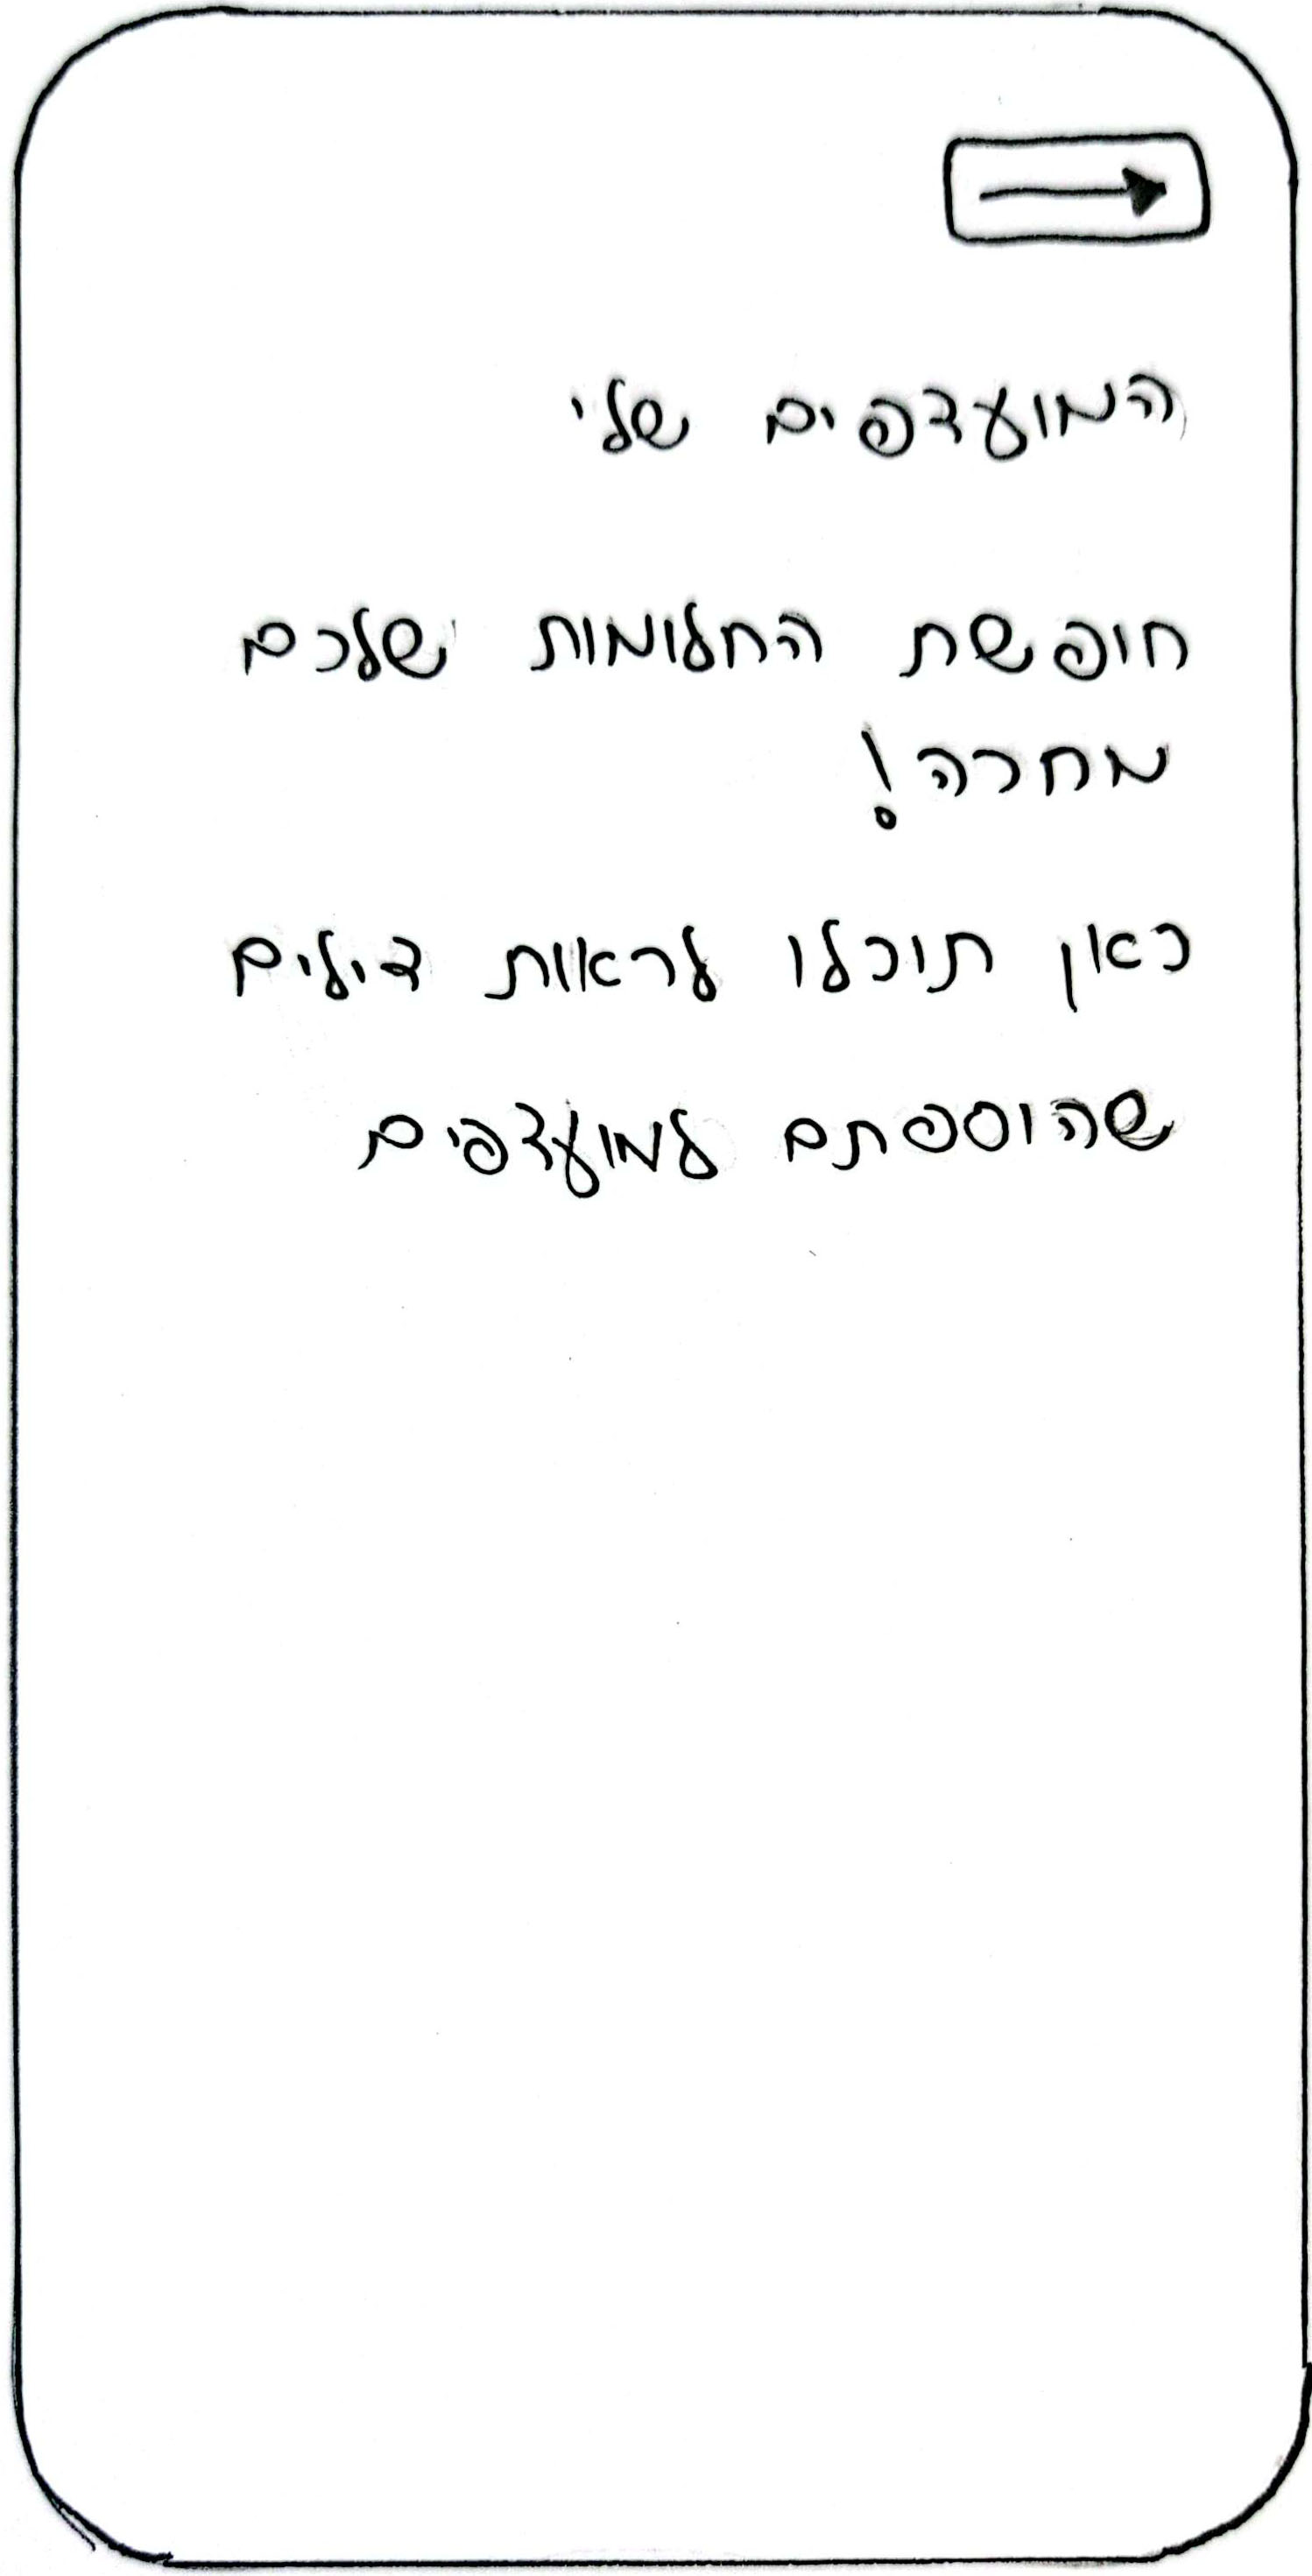 המועדפים שלי
חופשת החלומות שלכם
מחכה!
כאן תוכלו לראות דילים
שהוספתם למועדפים